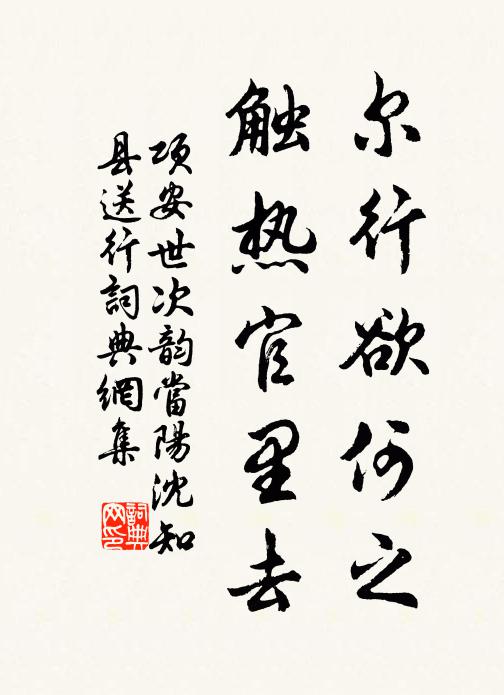 尔行欲何之
触热官里去
项安世次韵當陽沈知
县送行詞典網集
詞典
网印